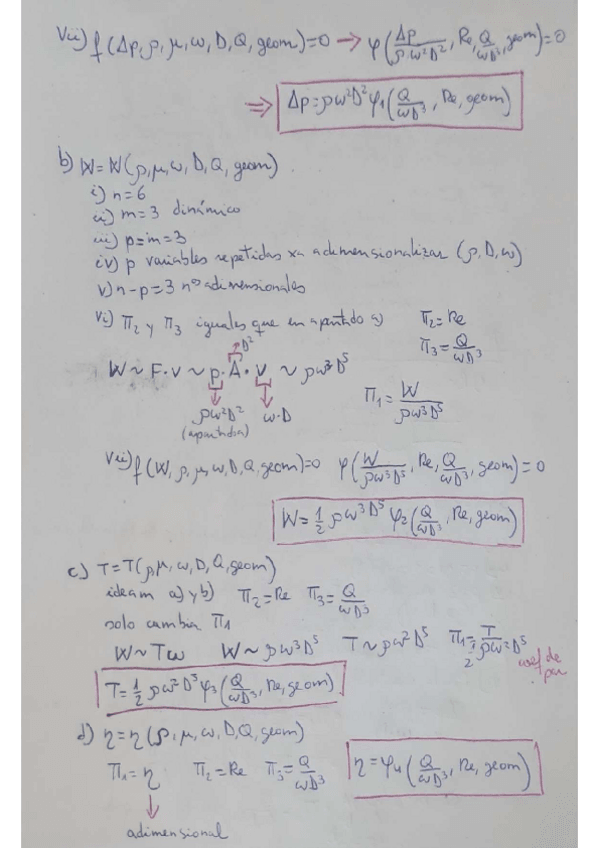 vii) f(Δp, ρ, μ, ω, D, Q, geom)=0 → φ(Δp/ρω²D², Re, Q/ωD³, geom)=0
⇒ Δp=ρω²D²φ₁(Q/ωD³, Re, geom)
b) W=W(ρ, μ, ω, D, Q, geom)
i) n=6
ii) m=3 dinámico
iii) p=m=3
iv) p variables repetidas xa adimensionalizar (ρ, D, ω)
v) n-p=3 nos adimensionales
vi) Π₂ y Π₃ iguales que en apartado a) Π₂=Re
Π₃=Q/ωD³
D²
W∼F·v∼p·A·v∼ρω³D⁵
Π₁=W/ρω³D⁵
ρω²D² ω·D
(apartado a)
vii) f(W, ρ, μ, ω, D, Q, geom)=0 φ(W/ρω³D⁵, Re, Q/ωD³, geom)=0
W=1/2 ρω³D⁵φ₂(Q/ωD³, Re, geom)
c) T=T(ρ, μ, ω, D, Q, geom)
idem a) y b) Π₂=Re Π₃=Q/ωD³
solo cambia Π₁
W∼Tω W∼ρω³D⁵ T∼ρω²D⁵ Π₁=T/½ρω²D⁵
coef de par
T=1/2 ρω²D⁵φ₃(Q/ωD³, Re, geom)
d) η=η(ρ, μ, ω, D, Q, geom)
Π₁=η Π₂=Re Π₃=Q/ωD³ η=φ₄(Q/ωD³, Re, geom)
adimensional